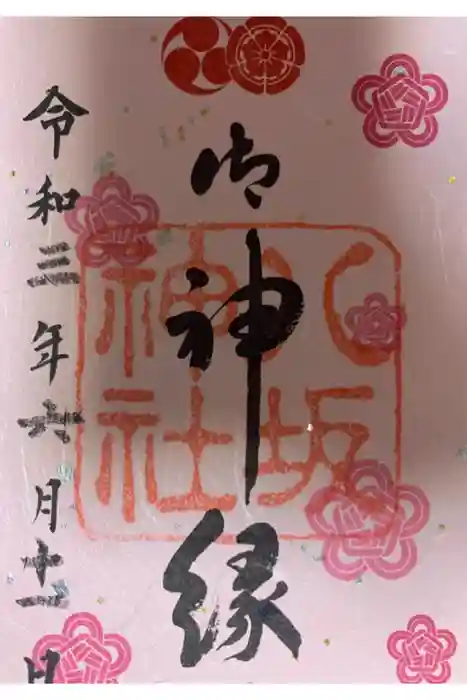 御神縁
八坂神社
令和三年六月十一日